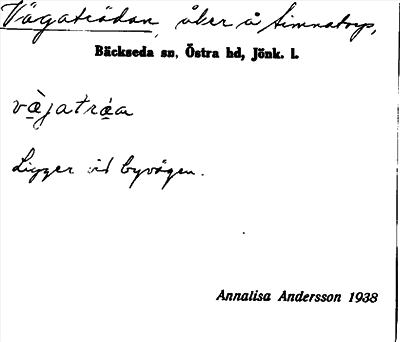 Vägaträdan, åker å Simnatorp,
Bäckseda sn, Östra hd, Jönk. l.
væ̀jatrǽa
Ligger vid byvägen.
Annalisa Andersson 1938